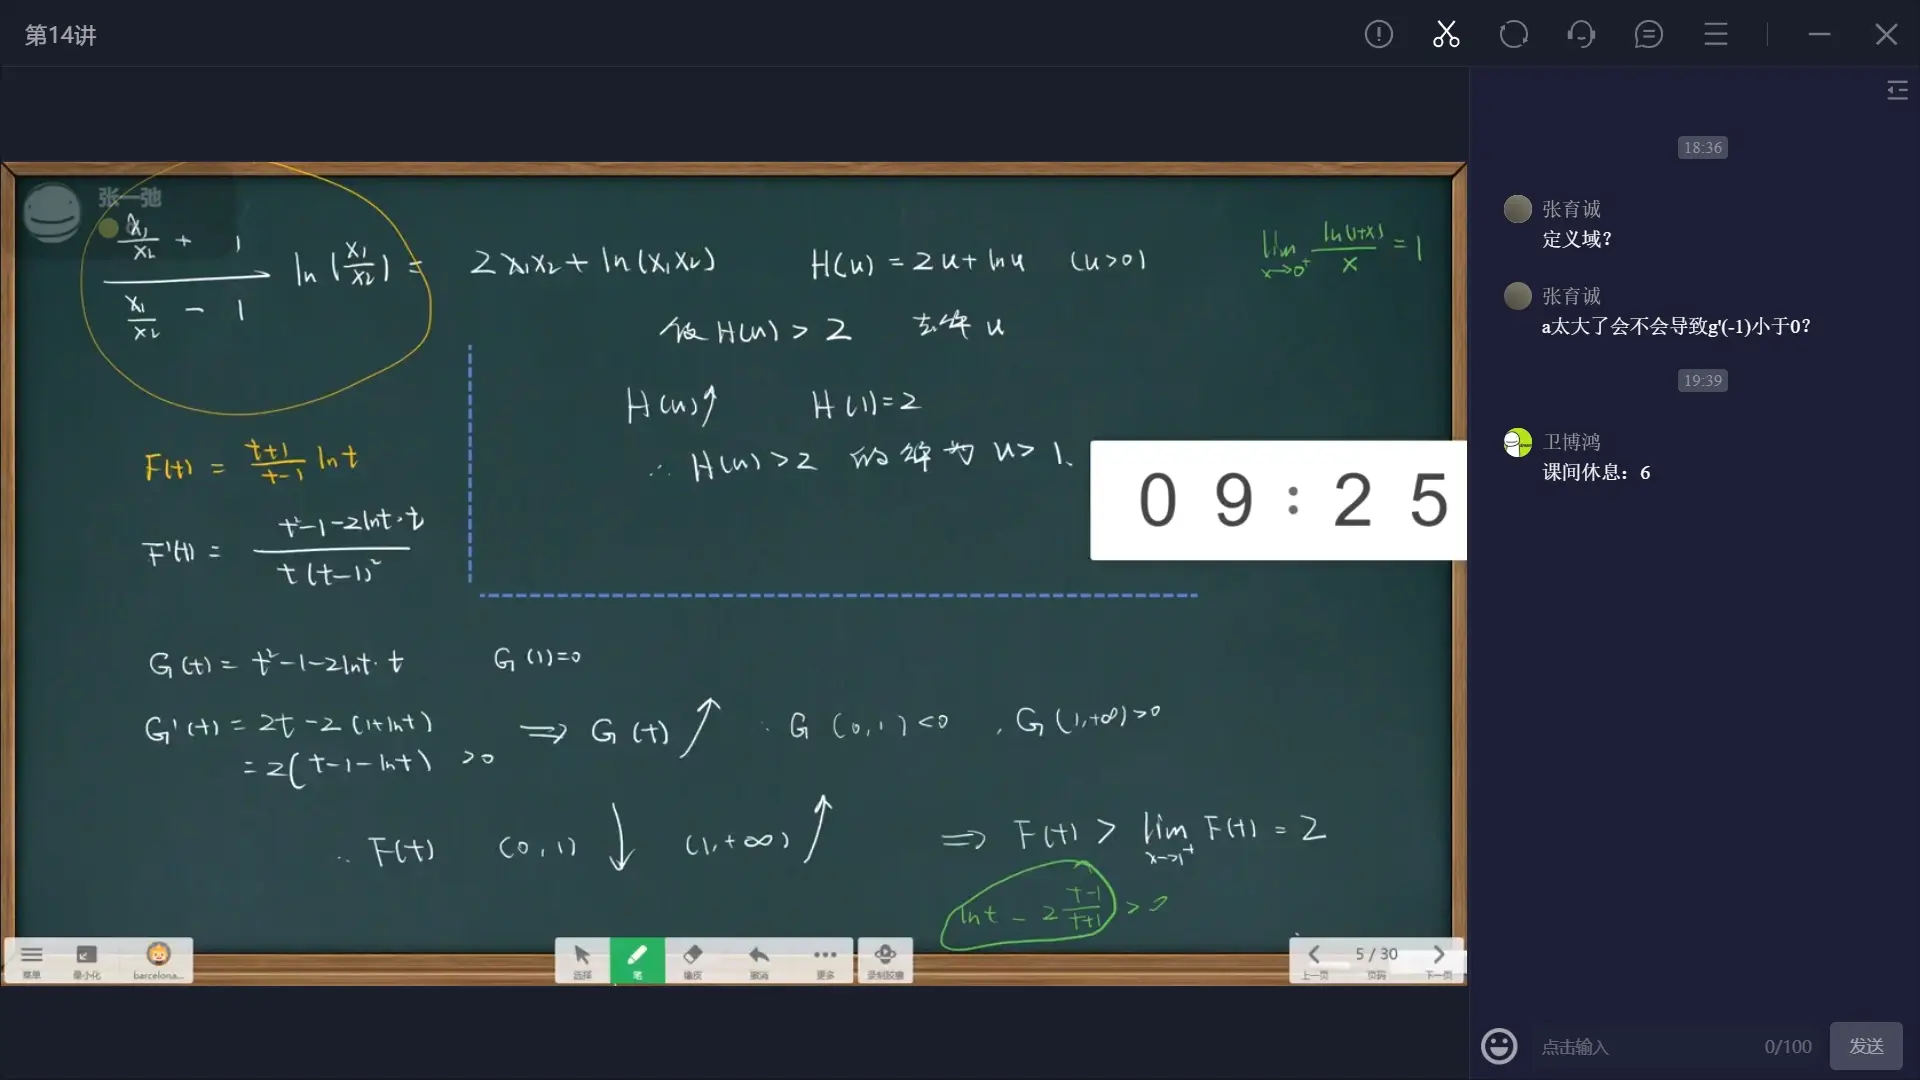 第14讲
张一弛
\frac{\frac{x_1}{x_2} + 1}{\frac{x_1}{x_2} - 1} ln(\frac{x_1}{x_2}) = 2x_1x_2 + ln(x_1x_2)
H(u) = 2u + ln u (u>0)
\lim_{x→0^+} \frac{ln(1+x)}{x} = 1
H(u) > 2 去解 u
H(u)↑ H(1)=2
∴ H(u)>2 的解为 u>1.
09:25
F(t) = \frac{t+1}{t-1} ln t
F'(t) = \frac{t^2-1-2lnt·t}{t(t-1)^2}
G(t) = t^2-1-2lnt·t G(1)=0
G'(t) = 2t-2(1+lnt)
= 2(t-1-lnt) >0
⇒ G(t)↗ ∴ G (0,1)<0 , G(1,+∞)>0
∴ F(t) (0,1)↓ (1,+∞)↗
⇒ F(t) > \lim_{x→1^+} F(t) = 2
lnt - 2\frac{t-1}{t+1} > 0
菜单
最小化
barcelona...
选择
笔
橡皮
撤消
更多
录制胶囊
5 / 30
上一页
页码
下一页
18:36
张育诚
定义域?
张育诚
a太大了会不会导致g'(-1)小于0?
19:39
卫博鸿
课间休息：6
点击输入
0/100
发送